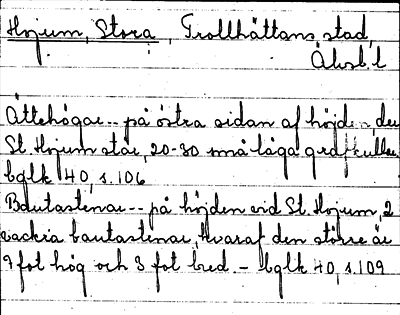 Hojum, Stora, Trollhättans stad,
Älvsb. l
Ättehögar-- på östra sidan af höjden, der
St. Hojum står, 20-30 små låga grafkullar.
bglk 40, s. 106
Bautastenar-- på höjden vid St. Hojum, 2
vackra bautastenar, Hvaraf den större är
9 fot hög och 3 fot bred. - bglk 40, s. 109